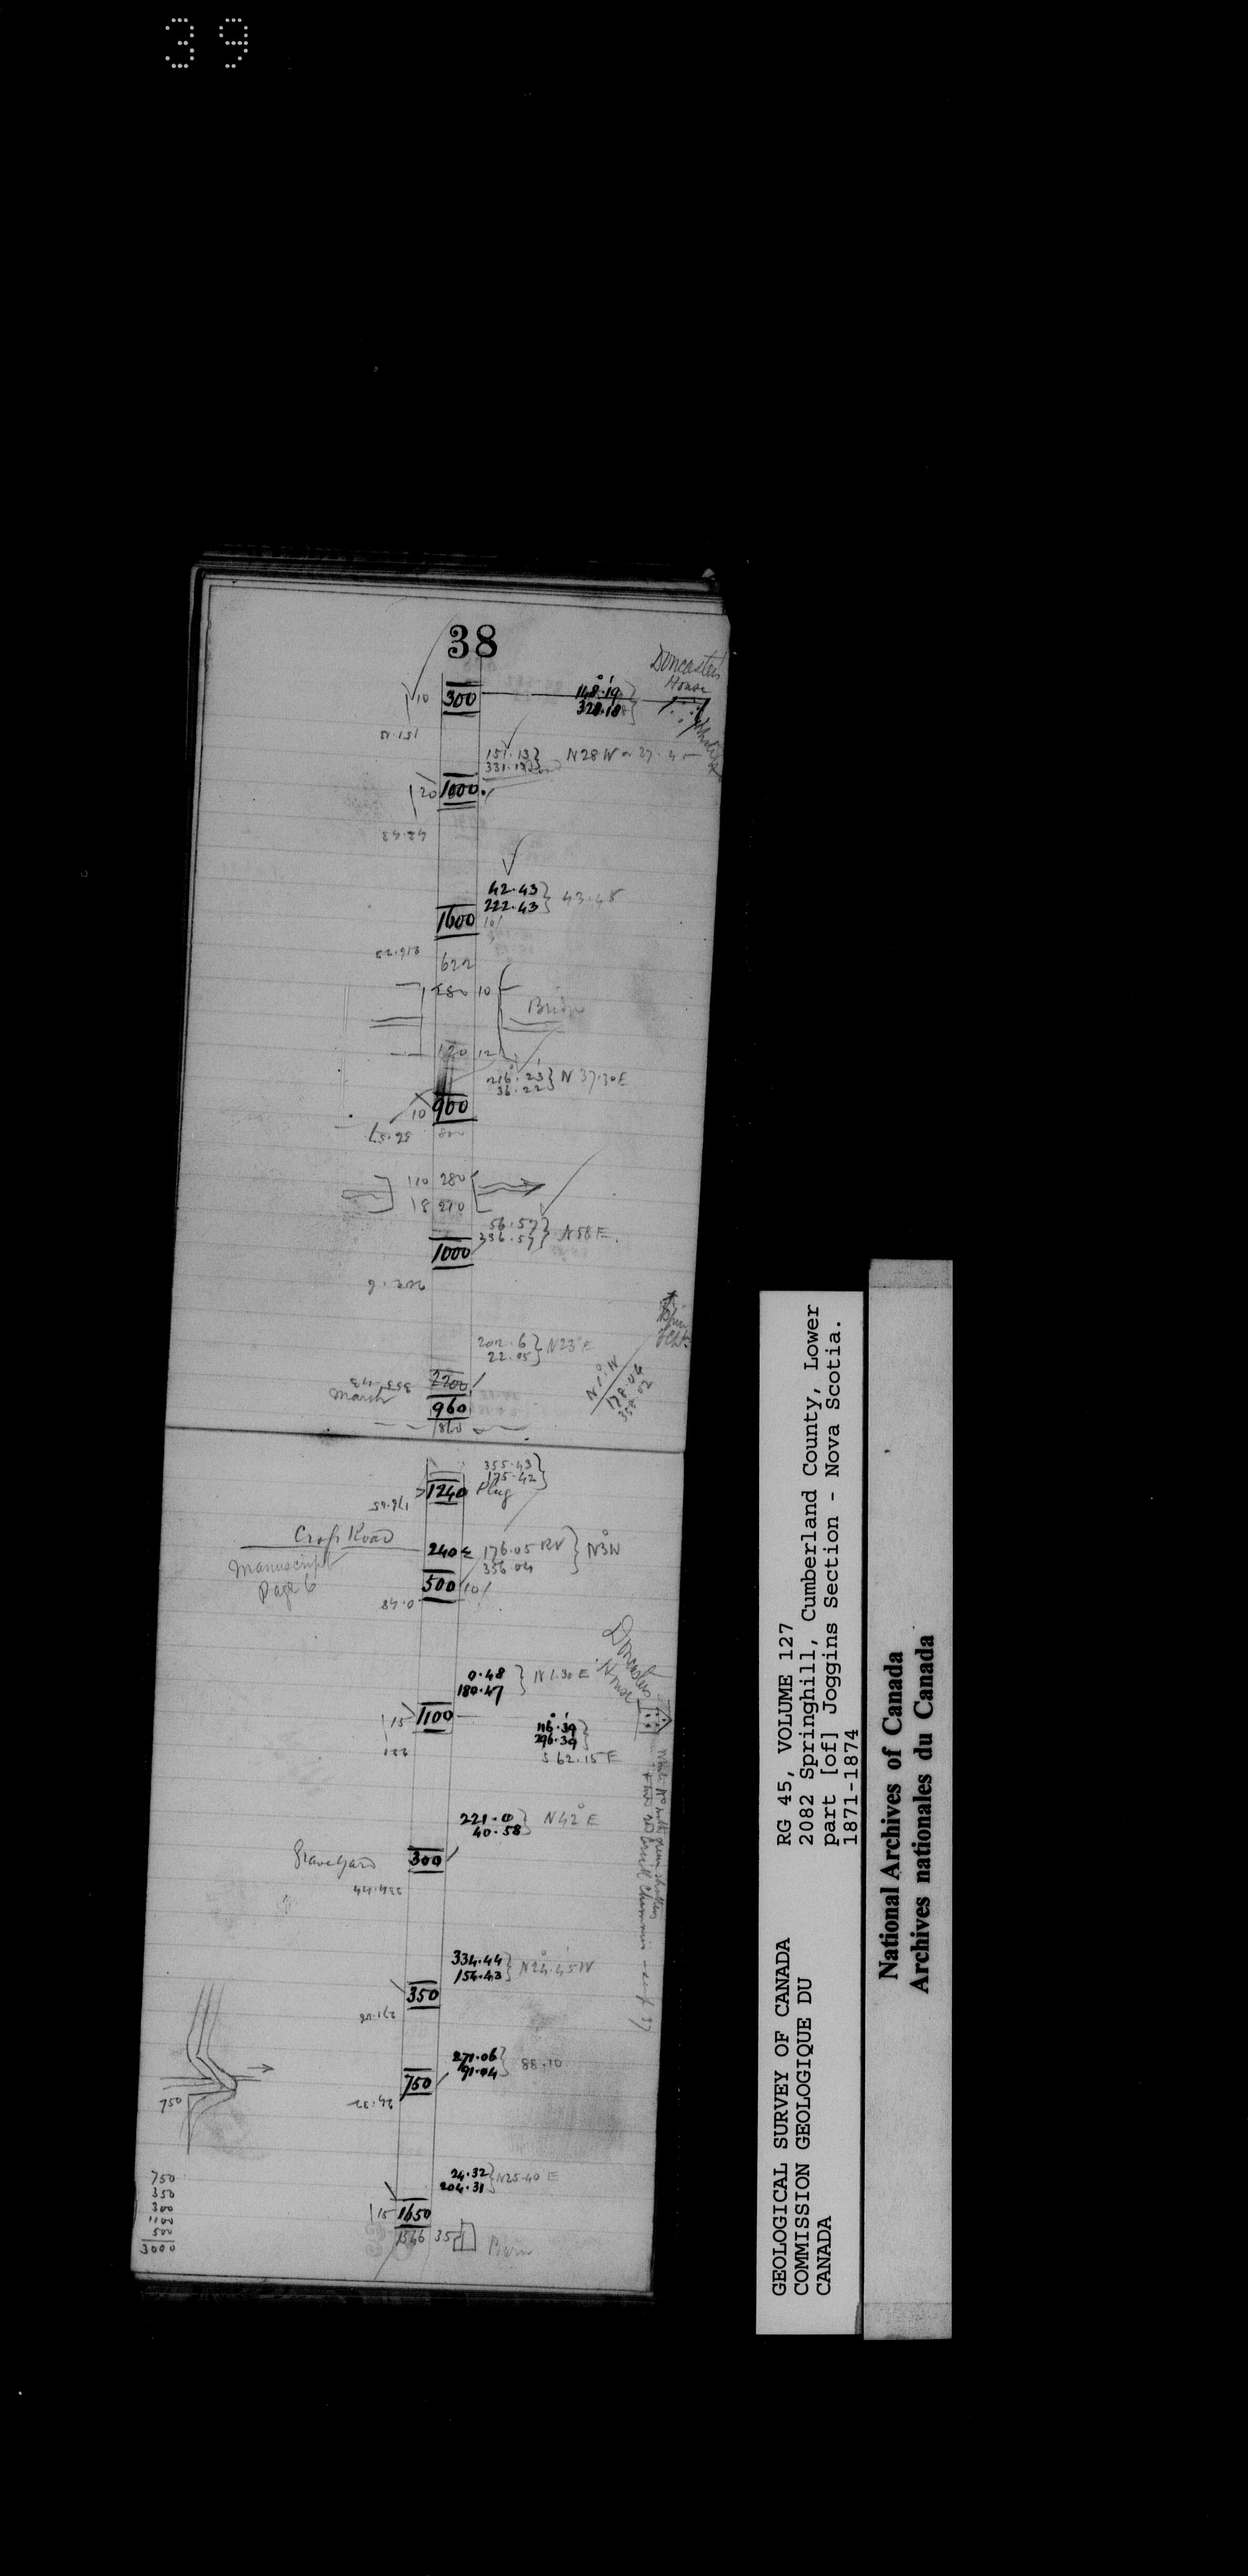 39
38
Doncasters
House
10 300 148°.19'
328.18
151.13
151.13 N28W or 27.45
331.13
20 1000
42.43
42.43 43.45
222.43
1600 10
216.23
622
280 10
Bridge
120 12
216.23 N 37.30E
36.22
10 900
56.57
800
110 280
18 210
56.57 N58E.
236.57
1000
202.6
202.6 N23°E
22.05
N 1° W
178.04
358.02
355.43
Marsh
2200
960
860
355.43
175.42
1240 Plug
176.05
Cross Road
240 176.05 RV N3°W
356.04
Manuscript
Page 6
500 10
0.48
Doncasters
House
0.48 N1.30E
180.47
15 1100
116°.39'
296.39
S 62.15 E
221
221.0 N42°E
40.58
GraveYard
300
334.44
334.44 N24°.45W
154.43
350
271.06
271.06 88.10
91.04
750
750
24.32
24.32 N25.40 E
204.31
15 1650
1566 35 Barn
750
350
300
1100
500
3000
GEOLOGICAL SURVEY OF CANADA
COMMISSION GEOLOGIQUE DU
CANADA
RG 45, VOLUME 127
2082 Springhill, Cumberland County, Lower
part [of] Joggins Section - Nova Scotia.
1871-1874
National Archives of Canada
Archives nationales du Canada